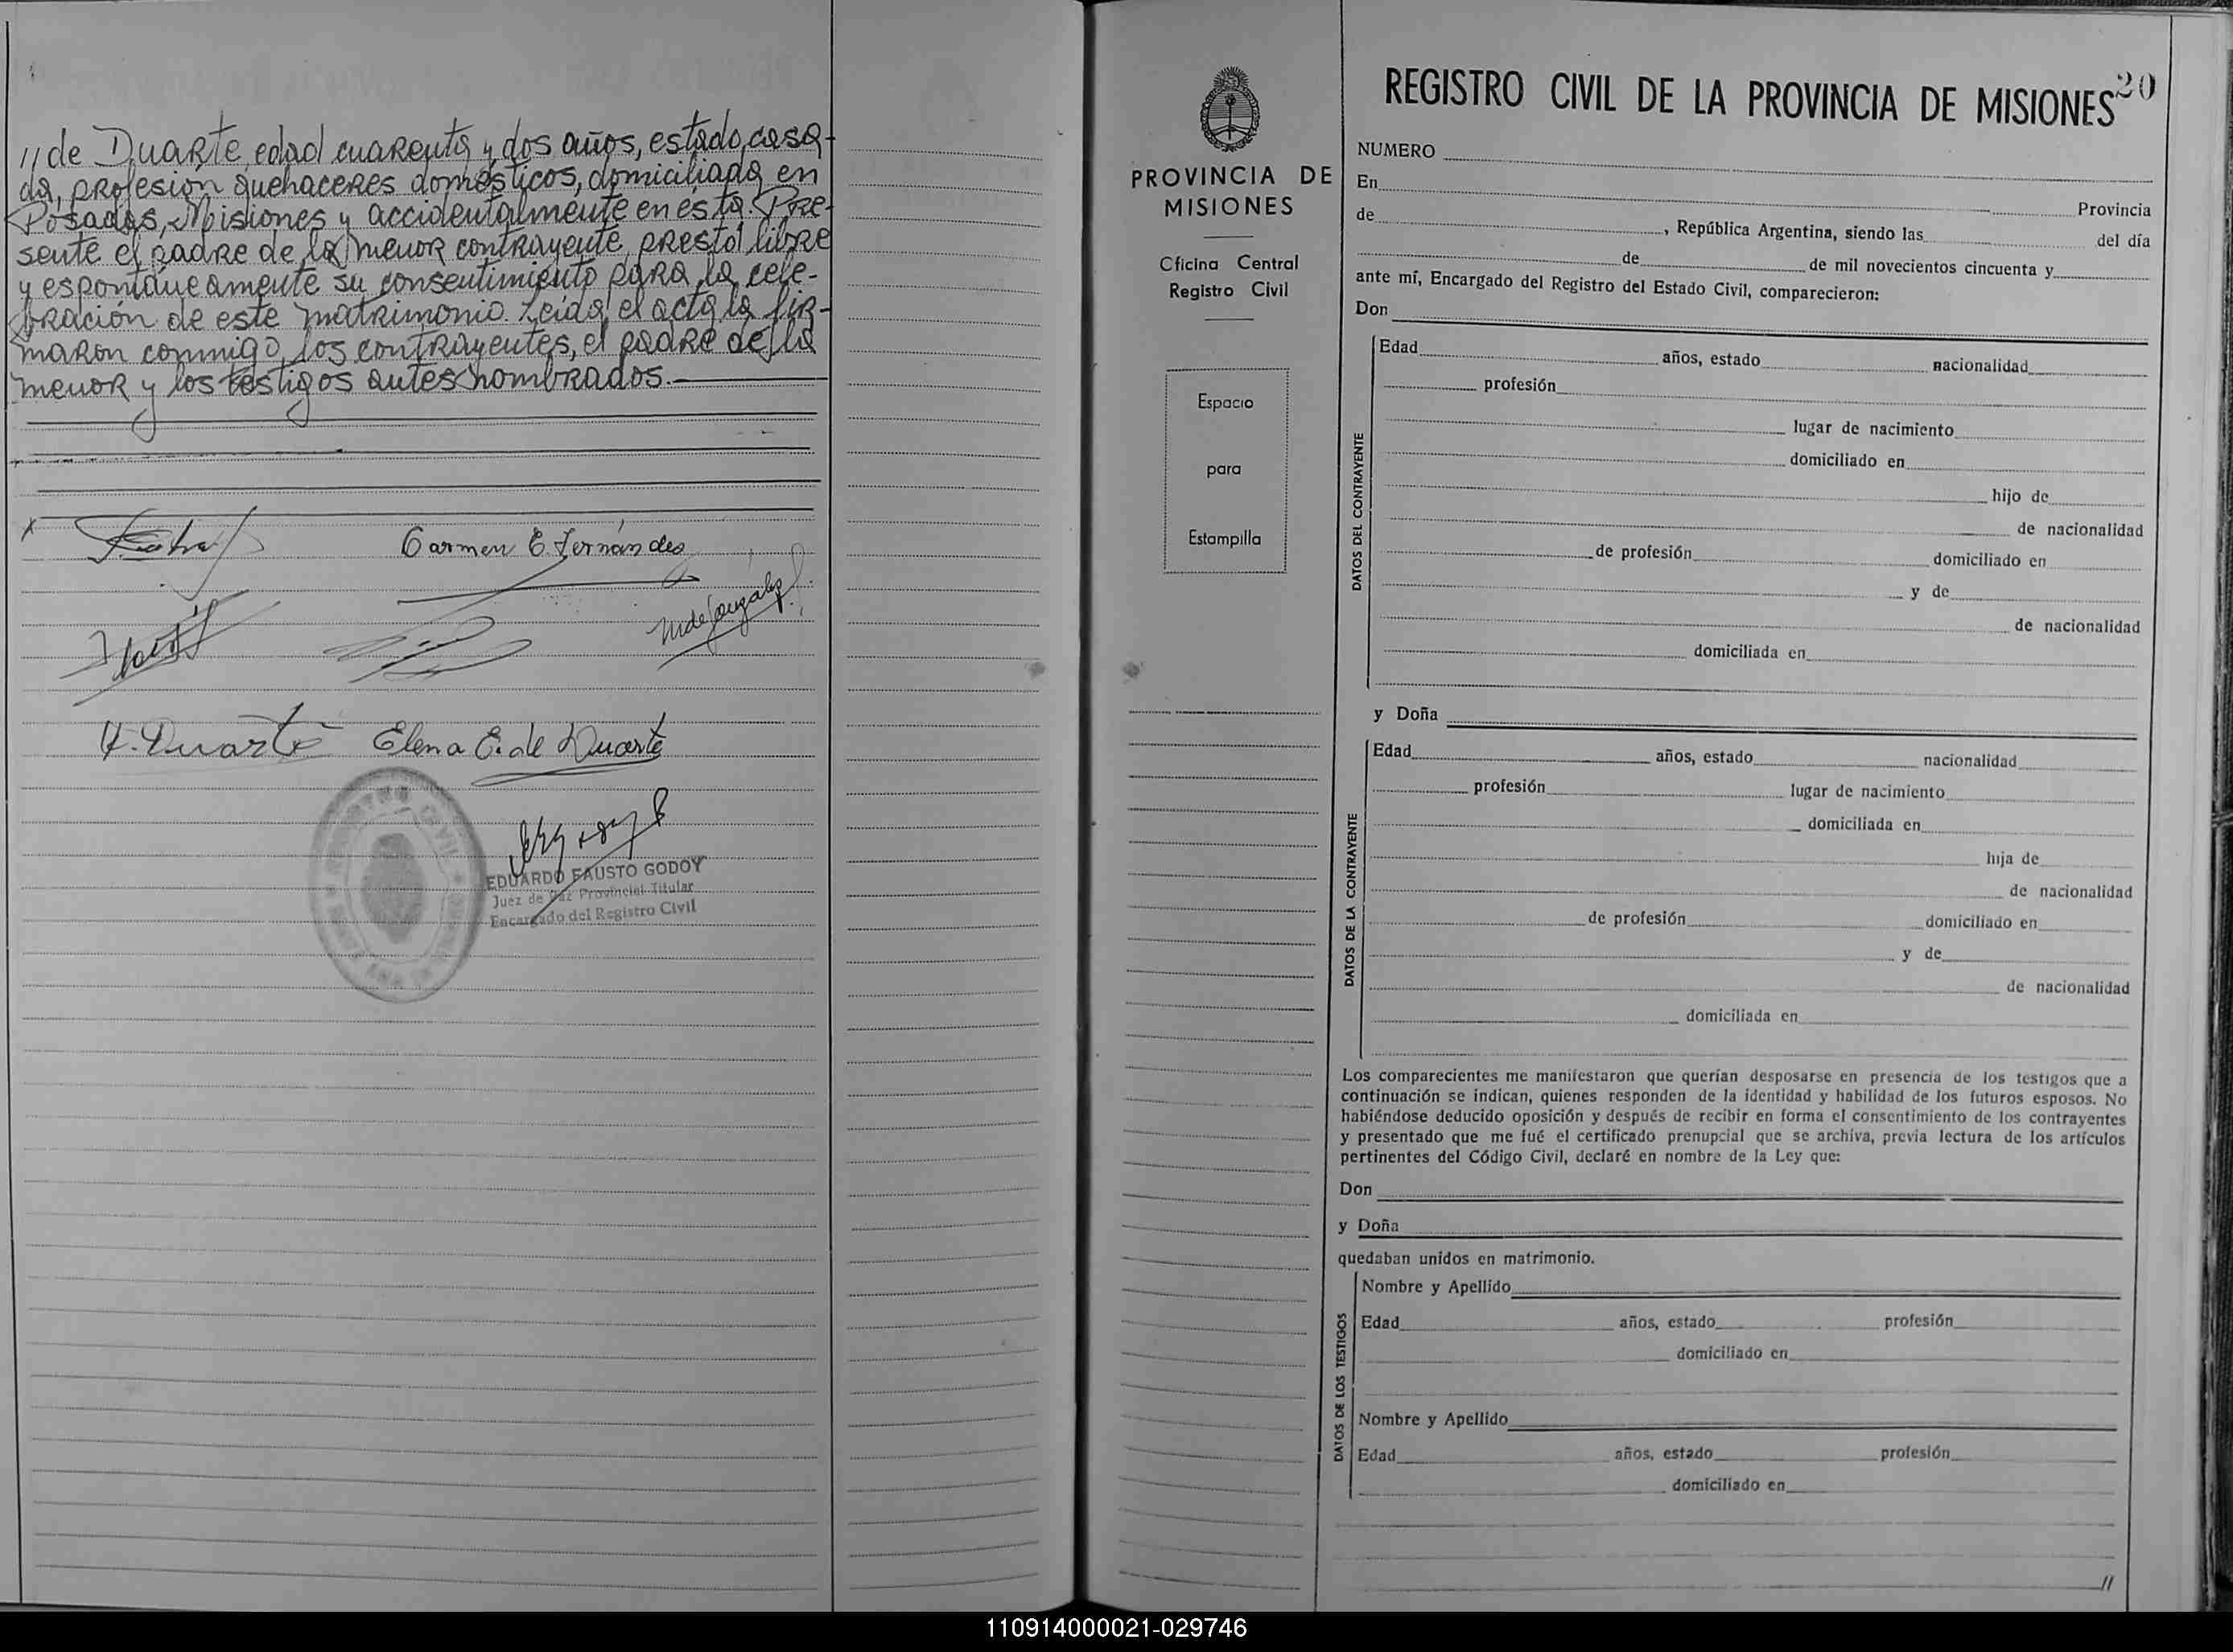 // de Duarte, edad cuarenta y dos años, estado casa-
da, profesión quehaceres domésticos, domiciliada en
Posadas, Misiones y accidentalmente en ésta. Pre-
sente el padre de la menor contrayente, prestó libre
y espontáneamente su consentimiento para la cele-
bración de este matrimonio. Leída el acta la fir-
maron conmigo, los contrayentes, el padre de la
menor y los testigos antes nombrados.
Carmen E. Fernández
M de González
H. Duarte Elena E. de Duarte
EDUARDO FAUSTO GODOY
Juez de Paz Provincial Titular
Encargado del Registro Civil
PROVINCIA DE
MISIONES
Oficina Central
Registro Civil
Espacio
para
Estampilla
REGISTRO CIVIL DE LA PROVINCIA DE MISIONES 20
NUMERO
En Provincia
de , República Argentina, siendo las del día
de de mil novecientos cincuenta y
ante mí, Encargado del Registro del Estado Civil, comparecieron:
Don
DATOS DEL CONTRAYENTE
Edad años, estado nacionalidad
profesión
lugar de nacimiento
domiciliado en
hijo de
de nacionalidad
de profesión domiciliado en
y de
de nacionalidad
domiciliada en
y Doña
DATOS DE LA CONTRAYENTE
Edad años, estado nacionalidad
profesión lugar de nacimiento
domiciliada en
hija de
de nacionalidad
de profesión domiciliado en
y de
de nacionalidad
domiciliada en
Los comparecientes me manifestaron que querían desposarse en presencia de los testigos que a
continuación se indican, quienes responden de la identidad y habilidad de los futuros esposos. No
habiéndose deducido oposición y después de recibir en forma el consentimiento de los contrayentes
y presentado que me fué el certificado prenupcial que se archiva, previa lectura de los artículos
pertinentes del Código Civil, declaré en nombre de la Ley que:
Don
y Doña
quedaban unidos en matrimonio.
DATOS DE LOS TESTIGOS
Nombre y Apellido
Edad años, estado profesión
domiciliado en
Nombre y Apellido
Edad años, estado profesión
domiciliado en
//
110914000021-029746